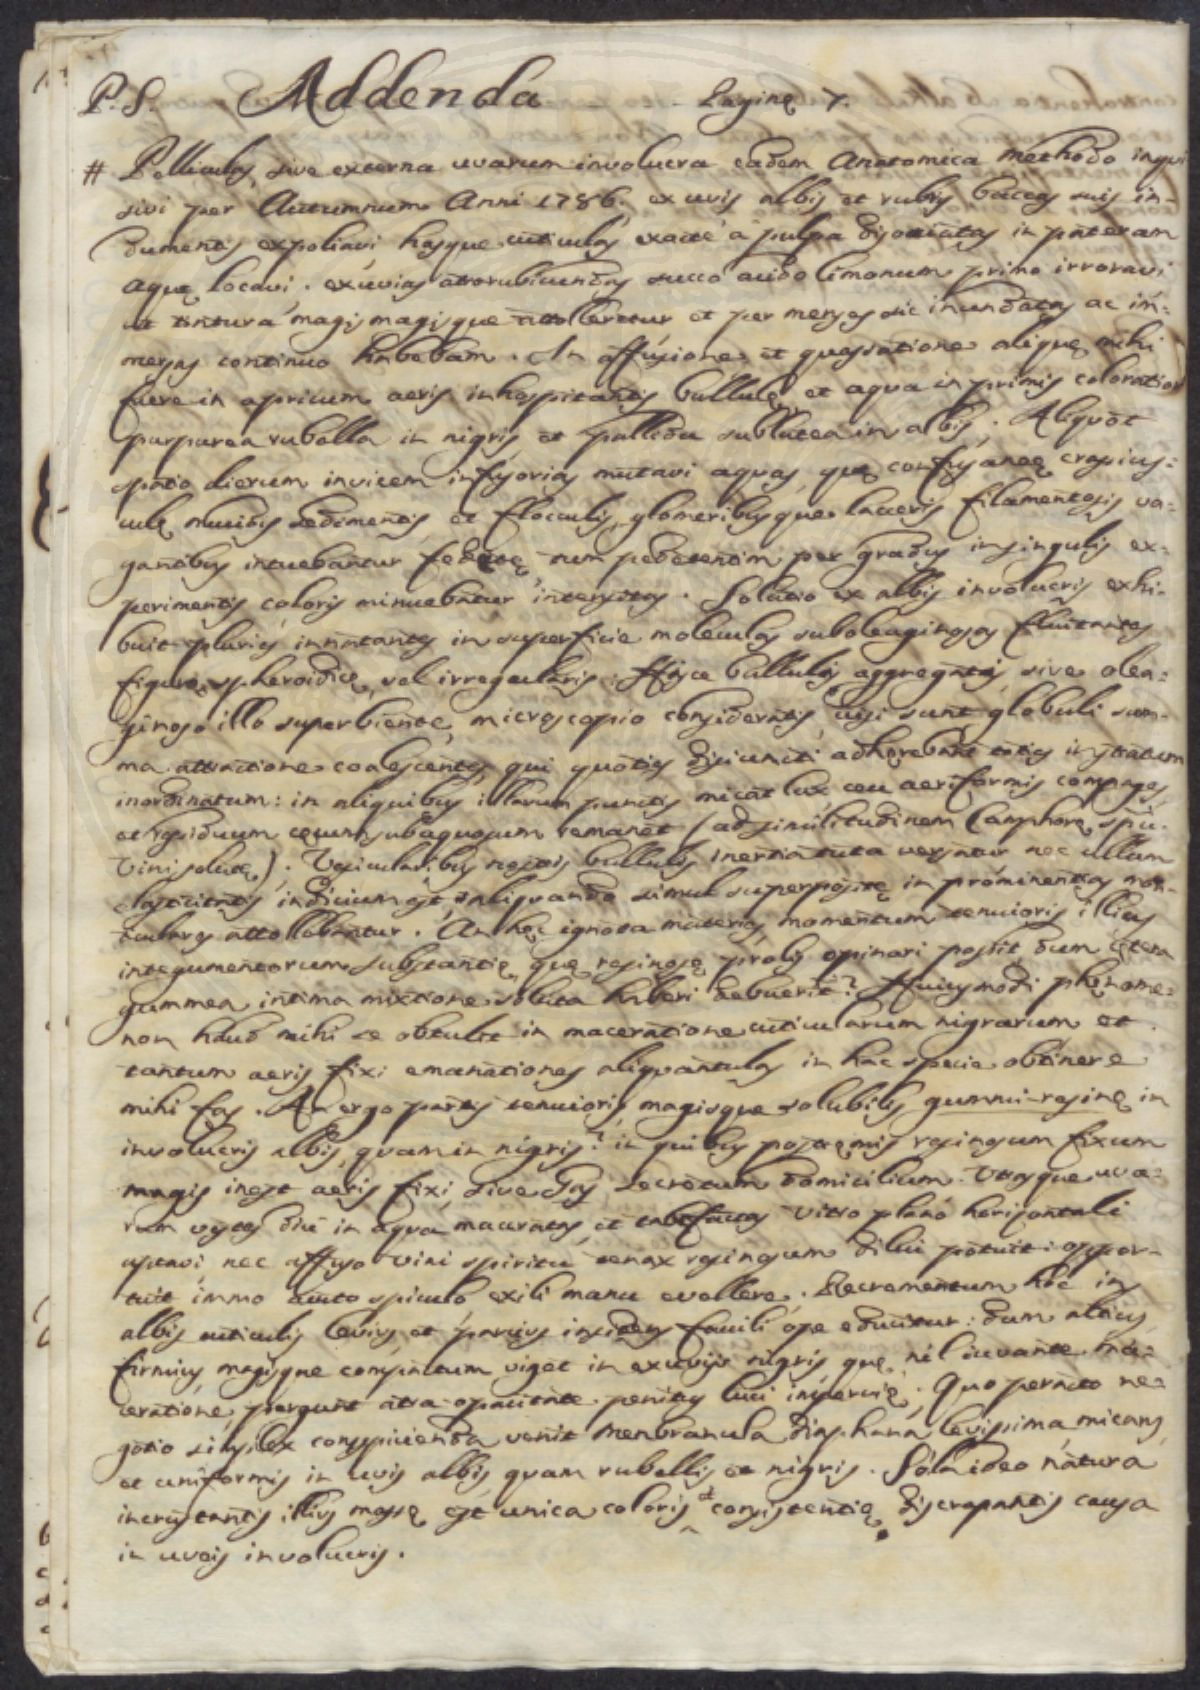 P.S. Addenda Paginę 7.
# Pelliculas, sive externa uvarum involucra eâdem Anatomica methodo inqui
sivi per Autumnum Anni 1786. ex uvis albis et rubris baccas suis in-
dumentis expoliavi, hasque cuticulas exacte a pulpa disociatas in pateram
aquę locavi. exuvias atrorubicundas succo acido limonum primo irroravi
ut tintura magis magisque attolleretur et per menses sic inundatas ac im-
mersas continuo habebam. In affusione et quassatione aliquę mihi
fuere in apricum aeris inhospitantis bullulę, et aqua in primis coloratior
purpurea rubella in nigris et pallida sublutea in albis. Aliquot
spatio dierum invicem infusorias mutavi aquas, quę confusaneę crasius-
culę mucidis sedimentis, et flocculis, glomeribusque laceris filamentosis va-
gantibus intuebantur fedatę, num pedetentim per gradus in singulis ex-
perimentis coloris minuebatur intensitas. Solutio ex albis involucris exhi-
buit pluries innatantes in superficie moleculas suboleaginosas fluitantes
figurę spheroidicę, vel irregularis. Hisce bullulis aggregatis, sive olea-
ginoso illo superbiente, microscopio consideratis, visi sunt globuli sum-
ma attractione coalescentes, qui quoties disiuncti adhęrebant toties in stratum
inordinatum: in aliquibus illarum punctis micat lux ceu aeriformis compages,
et residuum cęcum subaquosum remanet (ad similitudinem Camphorę spir.
Vini solutę). Vesicularibus nostris bullulis inertia tuta versatur nec ullum
elasticitatis indicium est, aliquando simul superpositę in prominentias mon-
ticulares attollebantur. An hęc ignota materies momentum tenuioris illius
integumentorum substantię, quę resinosę prolis opinari possit, dum cętera
gummea intima mixtione soluta haberi debuerit? Huiusmodi phęnome-
non haud mihi se obtulit in maceratione cuticularum nigrarum, et
tantum aeris fixi emanationes aliquantulas in hac specie obtinere
mihi fas. An ergo partis tenuioris, magisque solubilis gummi-resinę in
involucris albis, quam in nigris? in quibus postremis resinosum fixum
magis inest aeris fixi, sive Gas secretum domicilium. Utrasque uva-
rum vestes diu in aqua maceratas, et tabefactas vitro plano horisontali
aptavi, nec affuso vini spiritu tenax resinosum dilui potuit: oppor-
tuit immo acuto spiculo exili manu evellere. Decrementum hoc in
albis cuticulis levius, et parcius insidens facili ope educitur: dum altius
firmius magisque conspicuum viget in exuviis nigris quę nil iuvante ma-
ceratione pergunt atra opacitate penitus luci impervię. Quo peracto ne-
gotio simplex conspicienda venit membranula diaphana levissima, micans,
et uniformis in uvis albis, quam rubellis et nigris. Sola ideo natura
incrustantis illius massę est unica coloris et consistentię discrepantis causa
in uveis involucris.